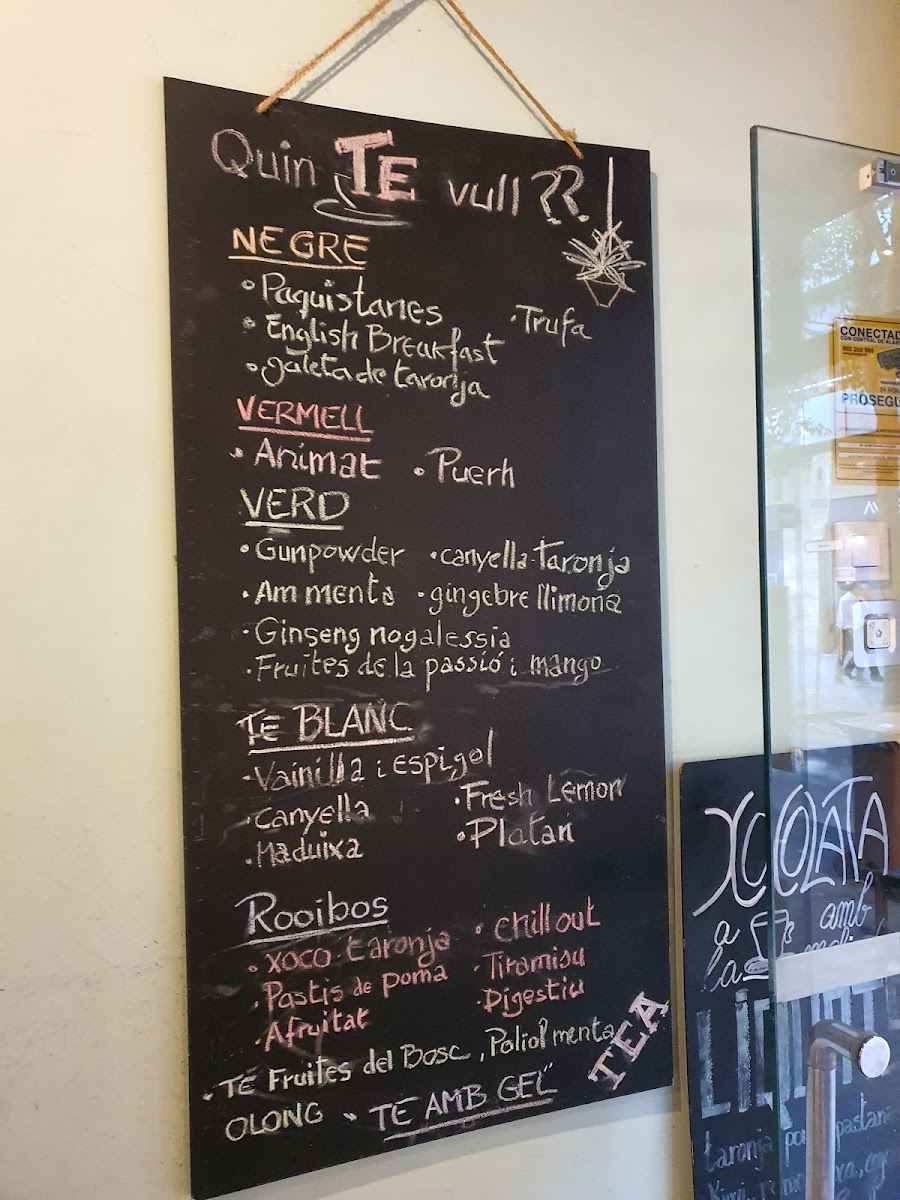 Quin TE vull ??
NEGRE
• Paquistanes
• Trufa
• English Breakfast
• galeta de taronja
VERMELL
• Animat • Puerh
VERD
• Gunpowder • canyella taronja
• Am menta • gingebre llimona
• Ginseng nogalessia
• Fruites de la passió i mango
TE BLANC
• Vainilla i espigol
• Canyella • Fresh Lemon
• Maduixa • Platan
Rooibos
• xoco taronja • chill out
• Pastis de poma • Tiramisu
• Afruitat • Digestiu
• TE Fruites del Bosc, Poliol menta
OLONG "TE AMB GEL"
TEA
CONECTAD
CON CENTRAL DE ALAR
PROSEGU
XOCOLATA
a amb
la
taronja